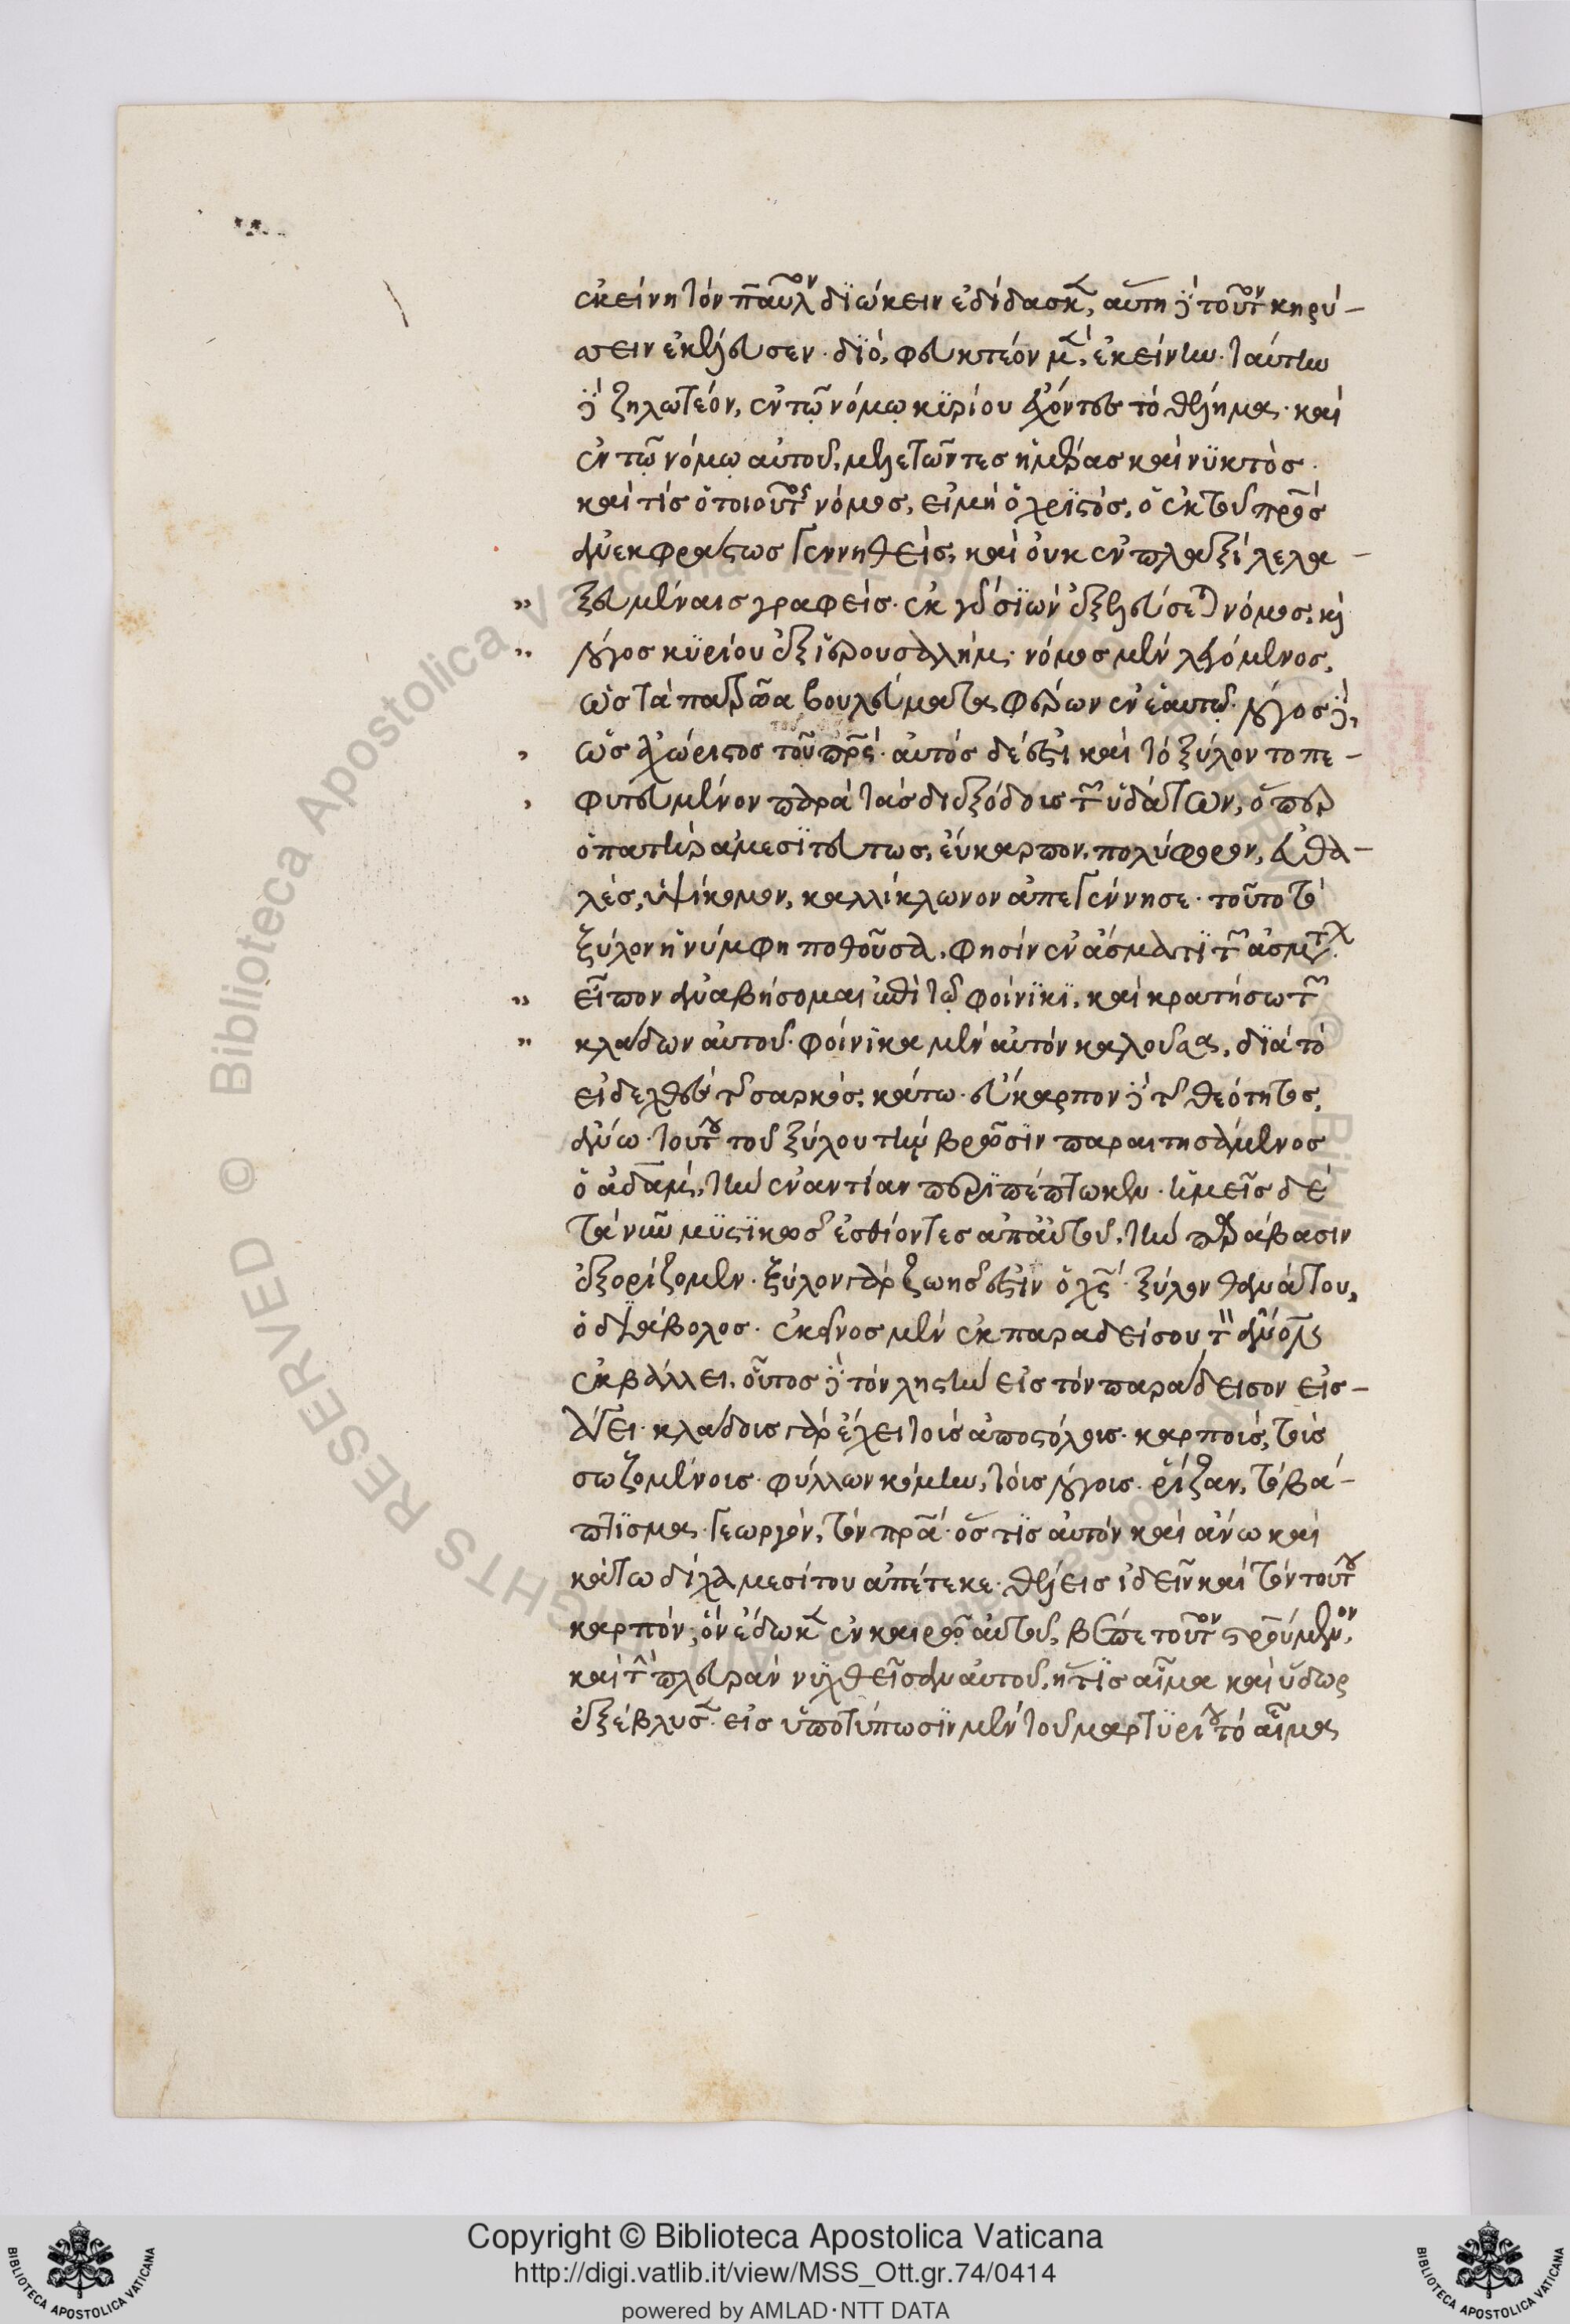 ἐκείνη τὸν παῦλον διώκειν ἐδίδασκε, αὕτη δὲ τοῦτον κηρύ-
ττειν ἐκέλευσεν· διὸ, φευκτέον μὲν, ἐκείνην· ταύτην
δὲ ζηλωτέον, ἐν τῷ νόμῳ κυρίου ἔχοντες τὸ θέλημα· καὶ
ἐν τῷ νόμῳ αὐτοῦ, μελετῶντες ἡμέρας καὶ νυκτὸς·
καὶ τίς ὁ τοιοῦτος νόμος, εἰ μὴ ὁ χριστός, ὁ ἐκ τοῦ πατρὸς
ἀνεκφράστως γεννηθείς, καὶ οὐκ ἐν πλαξὶ λελα-
ξευμέναις γραφείς· ἐκ γὰρ σιὼν ἐξελεύσεται νόμος, καὶ
λόγος κυρίου ἐξ ἱερουσαλήμ· νόμος μὲν λεγόμενος,
ὡς τὰ πατρῷα βουλεύματα φέρων ἐν ἑαυτῷ· λόγος δὲ,
ὡς ἀχώριστος τοῦ πατρός· αὐτὸς δέ ἐστι καὶ τὸ ξύλον τὸ πε-
φυτευμένον παρὰ τὰς διεξόδους τῶν ὑδάτων, ὅπερ
ὁ πατὴρ ἀμεσιτεύτως, εὔκαρπον, πολύφορον, ἀειθα-
λές, ὑψίκομον, καλλίκλωνον ἀπεγέννησε· τοῦτο τὸ
ξύλον ἡ νύμφη ποθοῦσα, φησὶν ἐν ἄσματι τῶν ἀσμάτων·
εἶπον ἀναβήσομαι ἐπὶ τῷ φοίνικι, καὶ κρατήσω τῶν
κλάδων αὐτοῦ· φοίνικα μὲν αὐτὸν καλοῦσα, διὰ τὸ
εἰδεχθὲς τῆς σαρκός, κάτω· εὔκαρπον δὲ τῆς θεότητος,
ἄνω· τούτου τοῦ ξύλου τὴν βρῶσιν παραιτησάμενος
ὁ ἀδάμ, τὴν ἐναντίαν περιπέπτωκεν· ἡμεῖς δὲ
τανῦν μυστικῶς ἐσθίοντες ἀπ' αὐτοῦ, τὴν παράβασιν
ἐξορίζομεν· ξύλον γὰρ ζωῆς ἐστιν ὁ χριστός· ξύλον θανάτου,
ὁ διάβολος· ἐκεῖνος μὲν ἐκ παραδείσου τὸν ἄνθρωπον
ἐκβάλλει, οὗτος δὲ τὸν ληστὴν εἰς τὸν παράδεισον εἰσ-
άγει· κλάδους γὰρ ἔχει τοὺς ἀποστόλους· καρποὺς, τοὺς
σωζομένους· φύλλων κόμην, τοὺς λόγους· ῥίζαν, τὸ βά-
πτισμα· γεωργόν, τὸν πατέρα· ὅς τις αὐτὸν καὶ ἄνω καὶ
κάτω δίχα μεσίτου ἀπέτεκε· θέλεις ἰδεῖν καὶ τὸν τούτου
καρπόν, ὃν ἔδωκεν ἐν καιρῷ αὐτοῦ, βλέπε τοῦτον σταυρούμενον,
καὶ τὴν πλευρὰν νυχθεῖσαν αὐτοῦ, ἥτις αἷμα καὶ ὕδωρ
ἐξέβλυσεν· εἰς ὑποτύπωσιν μὲν τοῦ μαρτυρίου τὸ αἷμα
Copyright © Biblioteca Apostolica Vaticana
http://digi.vatlib.it/view/MSS_Ott.gr.74/0414
powered by AMLAD·NTT DATA